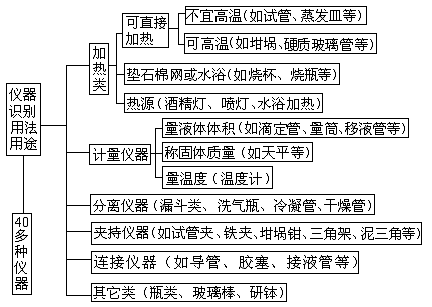 仪器
识别
用法
用途
40
多
种
仪
器
加
热
类
可直接
加热
不宜高温(如试管、蒸发皿等)
可高温(如坩埚、硬质玻璃管等)
垫石棉网或水浴(如烧杯、烧瓶等)
热源(酒精灯、喷灯、水浴加热)
计量仪器
量液体体积(如滴定管、量筒、移液管等)
称固体质量(如天平等)
量温度(温度计)
分离仪器(漏斗类、洗气瓶、冷凝管、干燥管)
夹持仪器(如试管夹、铁夹、坩埚钳、三角架、泥三角等)
连接仪器(如导管、胶塞、接液管等)
其它类(瓶类、玻璃棒、研钵)